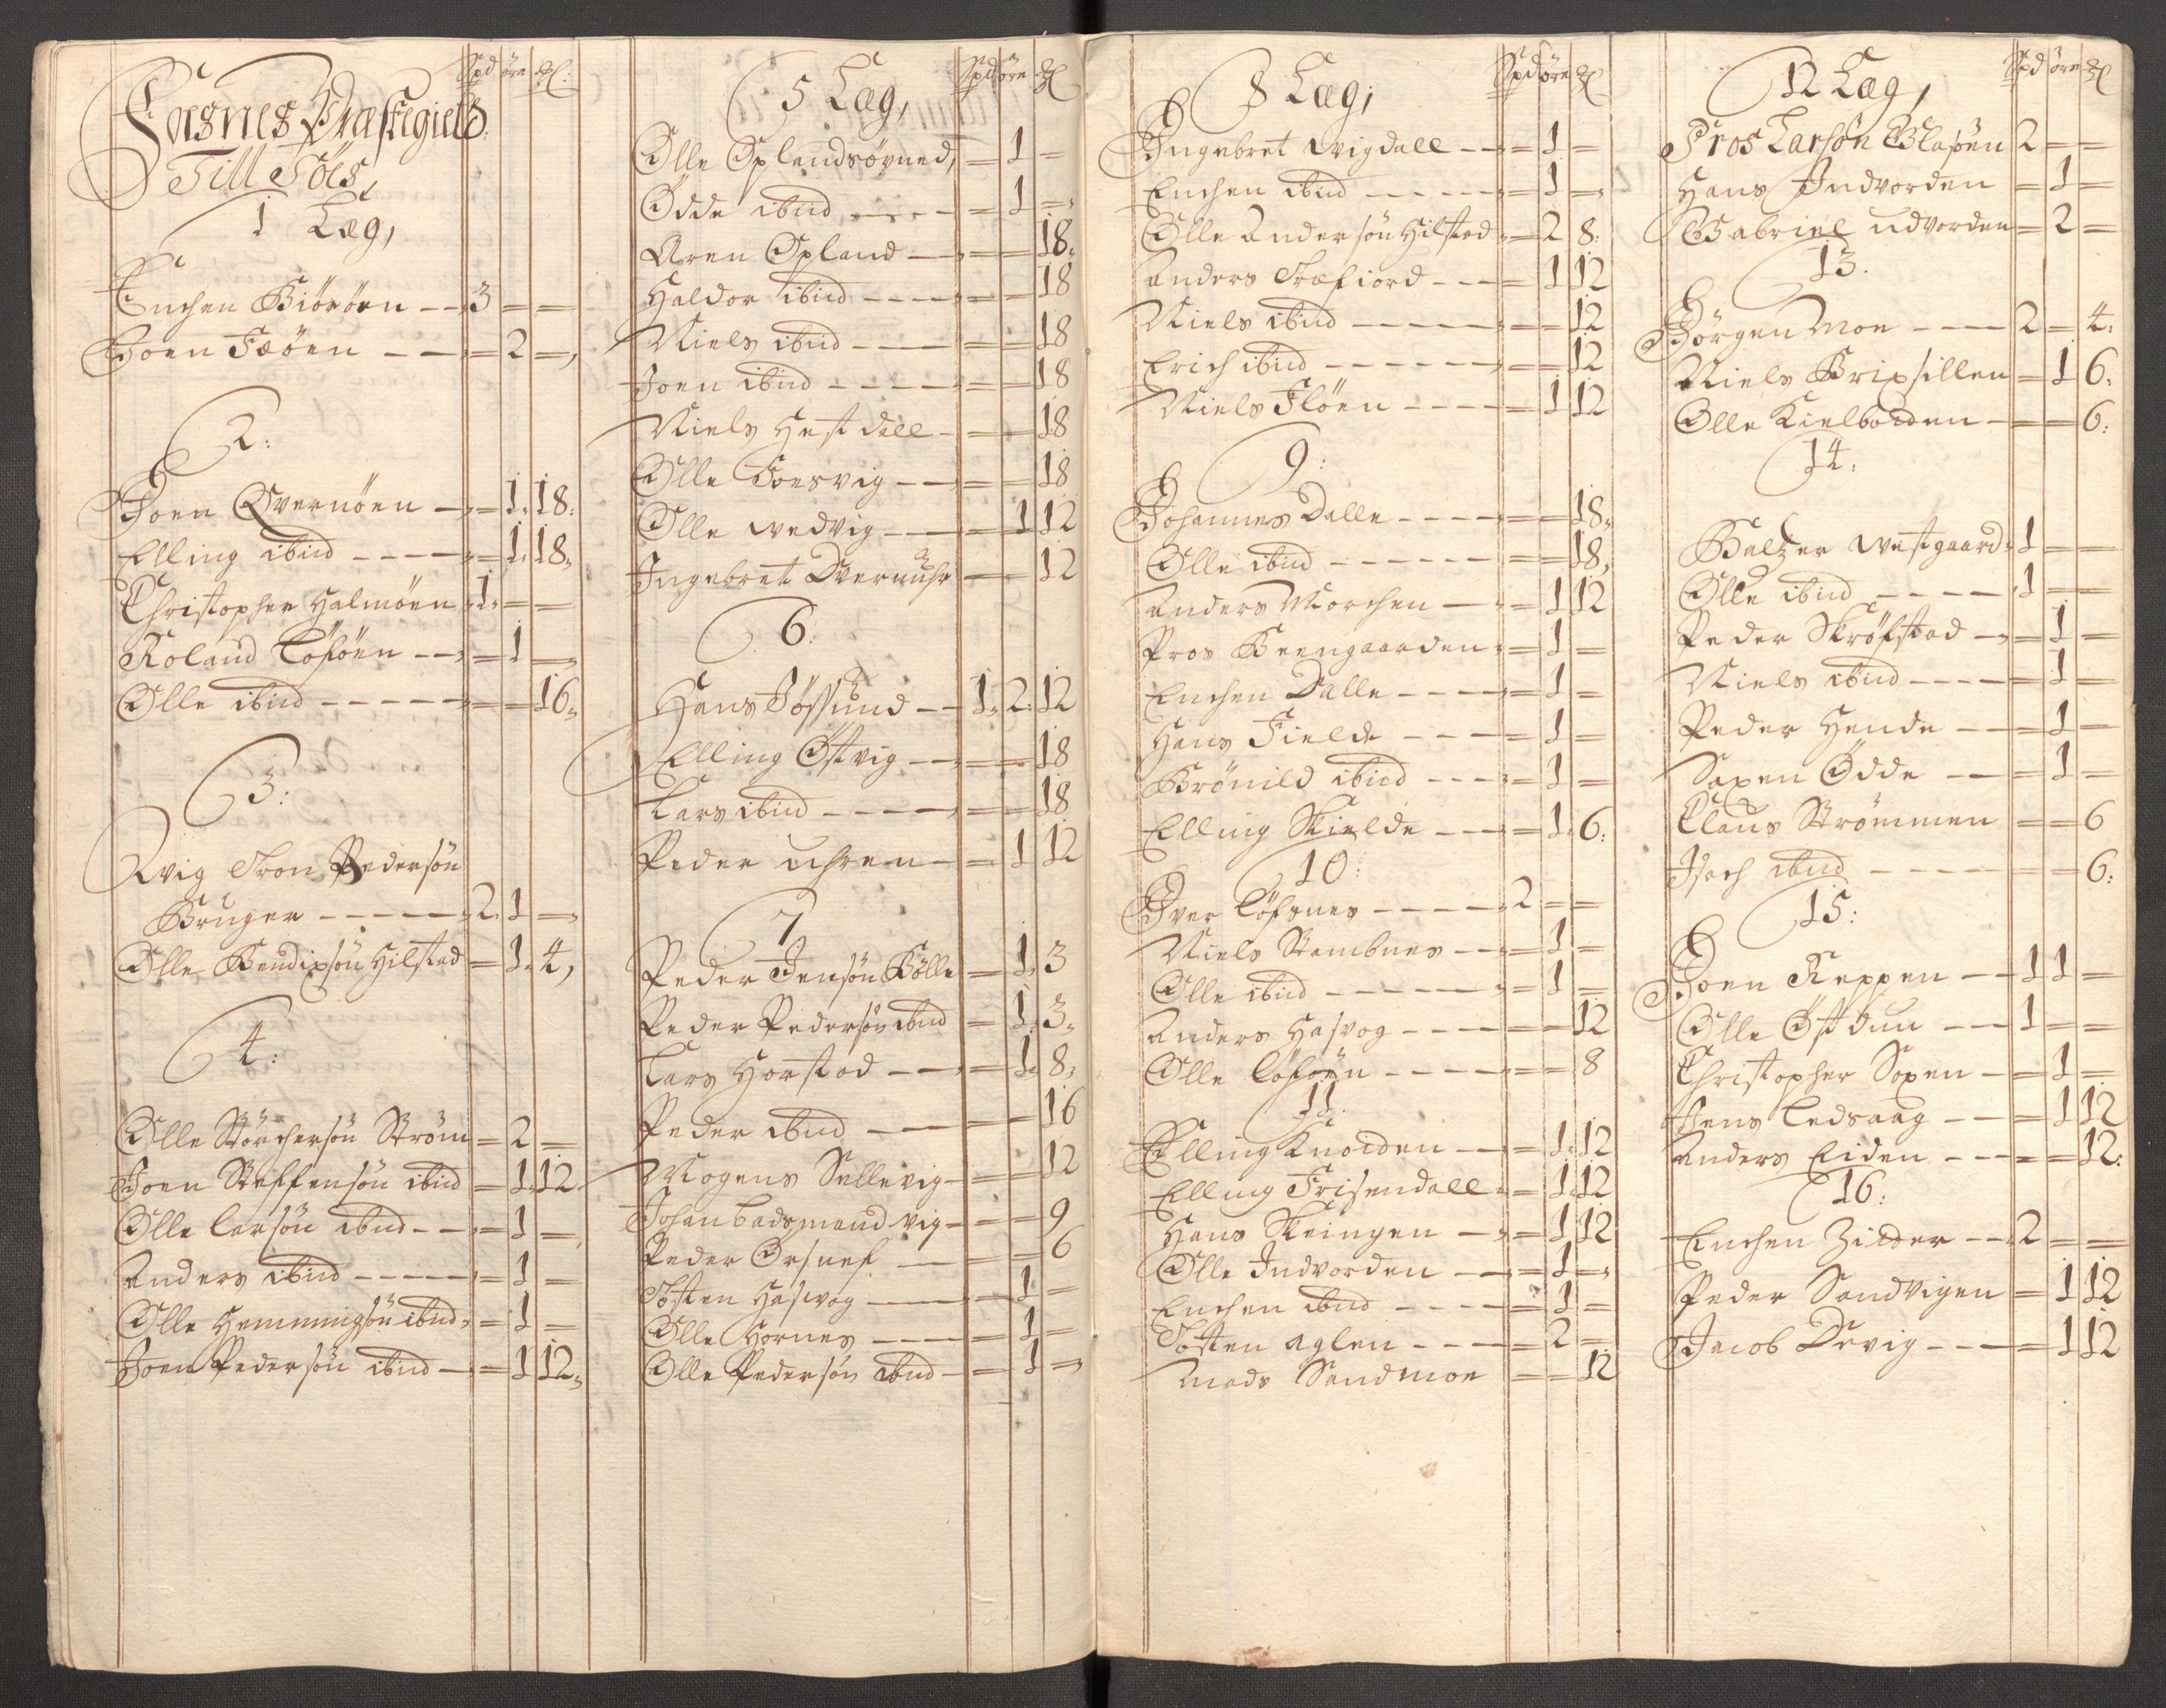 Spd öre ꝶ:
Fosnes Præstegield
Till Föls,
1 Læg,
Enchen Biörören — 3 = =
Joen Fæöen — = 2 =,
2:
Joen Qvernöen — = 1. 18:
Elling ibid — = 1. 18,
Christopher Halmöen 1. = =
Roland Löföen — = 1 =
Olle ibid — = = 16,
3:
Avig Tron Pedersön
Bruger — 2. 1 =
Olle Bendixsön Hilstad = 1. 4,
4:
Olle Störchersön Ström = 2 =
Joen Steffensön ibid = 1. 12
Olle Larsön ibid — = 1 =
Anders ibid — = 1 =
Olle Hemmingsön ibid = 1 =
Joen Pedersön ibid — = 1 12,
5 Læg, Spd öre ꝶ
Olle Oplandsövned, = 1 =
Odde ibid — = 1 =,
Aren Opland — = = 18,
Haldor ibid — = = 18
Niels ibid — = = 18
Joen ibid — = = 18
Niels Hestdall — = = 18
Olle Fosvig — = = 18
Olle Wedvig — = 1 12
Ingebret Overuhr = = 12
6:
Hans Jössund — 1. 2. 12
Elling Östvig — = = 18
Lars ibid — = = 18
Peder Uhren — = 1 12
7
Peder Jensön Bölle = 1. 3
Peder Pedersön ibid = 1. 3,
Lars Horstad — = 1. 8,
Peder ibid — = = 16
Mogens Sellevig — = = 12
Johan Badsmand vig — = = 9
Peder Orsnes — = = 6
Tosten Hasvog — = 1 =
Olle Hornes — = 1 =
Olle Pedersön ibid — = 1 =
8 Læg, Spd öre ꝶ
Ingebret Wigdall — = 1 =
Enchen ibid — = 1 =
Olle Andersön Hilstad = 2 8:
Anders Træfiord — = 1 12
Niels ibid — = = 12
Erich ibid — = = 12
Niels Flöen — = 1 12
9:
Johannes Dalle — = = 18,
Olle ibid — = = 18,
Anders Morchen — = 1 12
Pros Breengaarden = 1 =
Enchen Dalle — = 1 =
Hans Fielde — = 1 =
Brönild ibid — = 1 =
Elling Skielde — = 1. 6:
10:
Iver Löfsnes — 2 = =
Niels Stambnes — = 1 =
Olle ibid — = 1 =
Anders Hasvog — = = 12
Olle Löföen — = = 8
11.
Elling Knolden — = 1. 12
Elling Frisendall = 1. 12
Hans Kleingen — = 1 12
Olle Indvorden — = 1 =
Enchen ibid — = 1 =
Tosten Aglen — = 2 =
Mads Sandmoe = = 12
12 Læg, Spd öre ꝶ
Pros Larsön Blasöen 2 = =
Hans Indvorden = 1 =
Gabriel Udvorden = 2 =
13.
Jörgen Moe — 2 = 4:
Niels Brixsillen = 1 6:
Olle Kielbotden — = = 6:
14:
Baltzer Westgaard, 1 = =
Olle ibid — 1 = =
Peder Skröfstad — = 1 =
Niels ibid — = 1 =
Peder Hende — = 1 =
Saxen Odde — = 1 =
Claus Strömmen = = 6
Isach ibid — = = 6:
15:
Joen Reppen — 1 1 =
Olle Östduun — 1 = =
Christopher Soxen — = 1 =
Jens Ledsaag — = 1 12
Anders Eiden — = = 12:
16:
Enchen Zidder — 2 = =
Peder Sandvigen = 1 12
Jacob Devig — = 1 12